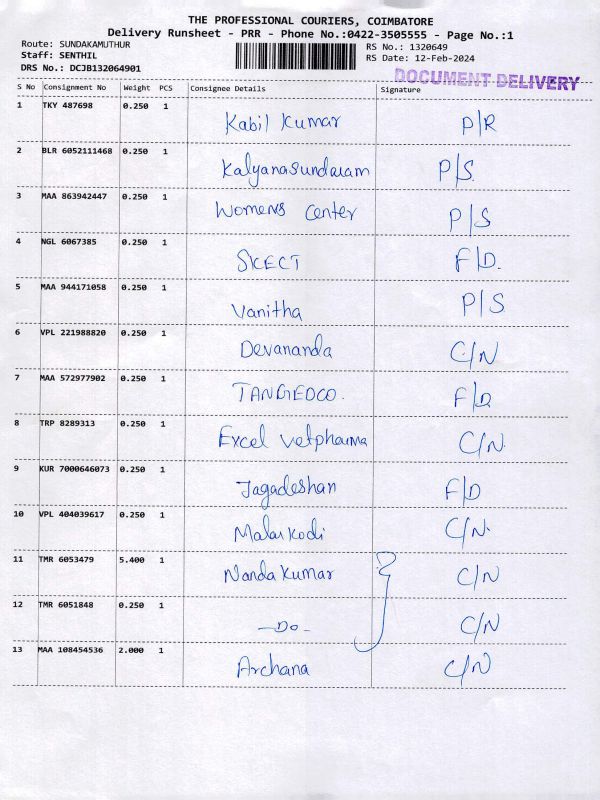 THE PROFESSIONAL COURIERS, COIMBATORE
Delivery Runsheet - PRR - Phone No.:0422-3505555 - Page No.:1
Route: SUNDAKAMUTHUR RS No.: 1320649
Staff: SENTHIL RS Date: 12-Feb-2024
DRS No.: DCJB132064901
DOCUMENT DELIVERY
S No Consignment No Weight PCS Consignee Details Signature
1 TKY 487698 0.250 1 Kabil Kumar P/R
2 BLR 6052111468 0.250 1 Kalyanasundaram P/S.
3 MAA 863942447 0.250 1 Womens Center P/S
4 NGL 6067385 0.250 1 SKECT F/D.
5 MAA 944171058 0.250 1 Vanitha P/S
6 VPL 221988820 0.250 1 Devananda C/N
7 MAA 572977902 0.250 1 TANGEDCO. F/D
8 TRP 8289313 0.250 1 Excel vetpharma C/N.
9 KUR 7000646073 0.250 1 Jagadeshan F/D
10 VPL 404039617 0.250 1 Malarkodi C/N.
11 TMR 6053479 5.400 1 Nanda Kumar C/N
12 TMR 6051848 0.250 1 -Do- C/N
13 MAA 108454536 2.000 1 Archana C/N